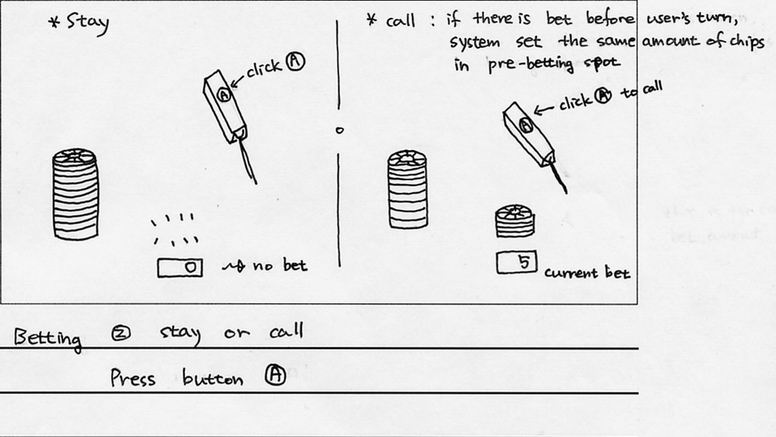 * Stay
click Ⓐ
A
0
no bet
* call : if there is bet before user's turn,
system set the same amount of chips
in pre-betting spot
click Ⓐ to call
A
5
current bet
Betting ② stay or call
Press button Ⓐ